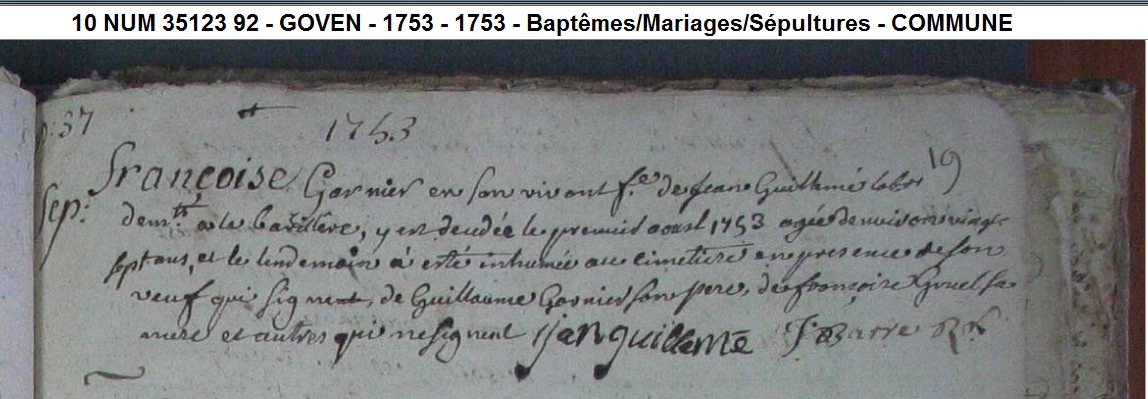 10 NUM 35123 92 - GOVEN - 1753 - 1753 - Baptêmes/Mariages/Sépultures - COMMUNE
p: 37
1753
19
Sep:
Françoise Garnier en son vivant f.e de jean Guillamé
dem.ts a la, y est decedée le premier aoust 1753 agée denviron vingt
sept ans, et le lendemain a esté inhumée au cimetiere en presence de son
veuf qui signent, de Guillaume Garnier son pere, de francoise Gruel sa
mere et autres qui ne signent jan guillamé